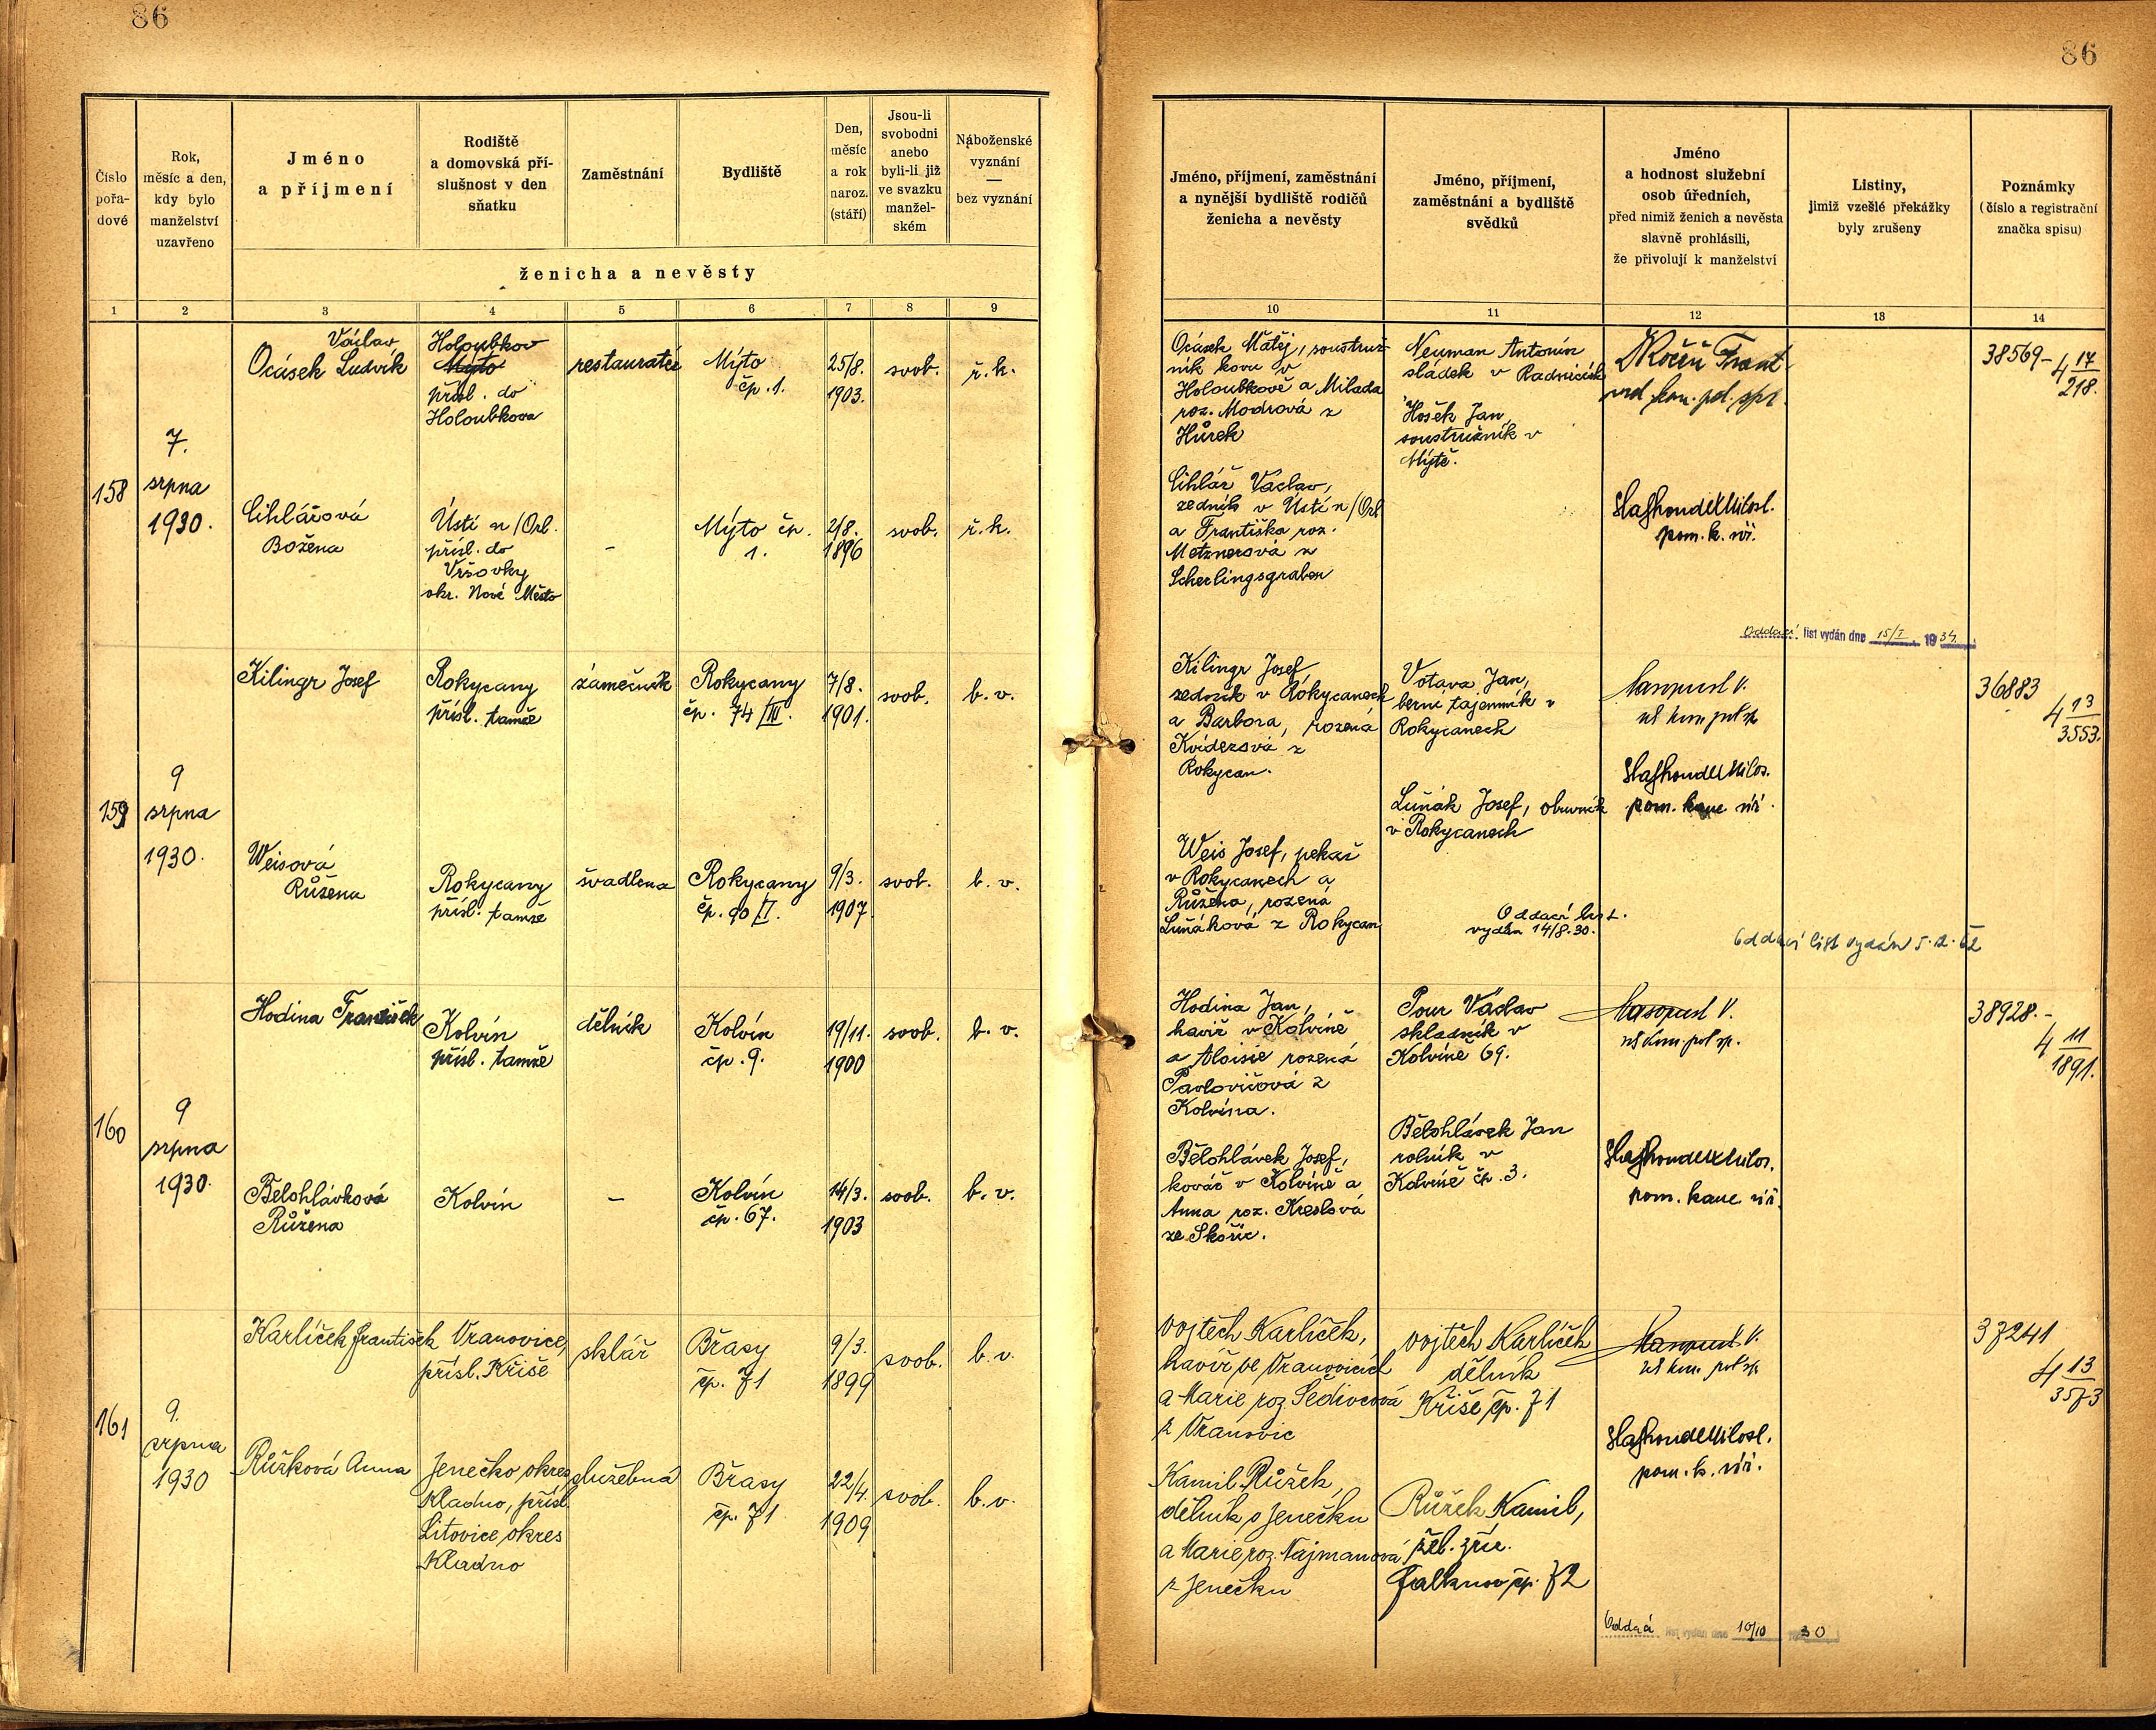 86
86
Číslo pořa-dové
Rok, měsíc a den, kdy bylo manželství uzavřeno
Jméno a příjmení
Rodiště a domovská pří-slušnost v den sňatku
Zaměstnání
Bydliště
Den, měsíc a rok naroz. (stáří)
Jsou-li svobodni anebo byli-li již ve svazku manžel-ském
Náboženské vyznání — bez vyznání
ženicha a nevěsty
Jméno, příjmení, zaměstnání a nynější bydliště rodičů ženicha a nevěsty
Jméno, příjmení, zaměstnání a bydliště svědků
Jméno a hodnost služební osob úředních, před nimiž ženich a nevěsta slavně prohlásili, že přivolují k manželství
Listiny, jimiž vzešlé překážky byly zrušeny
Poznámky (číslo a registrační značka spisu)
1 2 3 4 5 6 7 8 9 10 11 12 13 14
158
7.
srpna
1930.
Václav
Ocásek Ludvík
Holoubkov
Mýto
přísl. do
Holoubkova
restauratér
Mýto
čp. 1.
25/8.
1903.
svob.
ř. k.
Ocásek Matěj, soustruž
ník kovu v
Holoubkově a Milada
roz. Modrová z
Hůrek
Neuman Antonín
sládek v Radnicích
Hošek Jan,
soustružník v
Mýtě.
38569-4 17/218.
Cihlářová
Božena
Ústí n/Orl.
přísl. do
Vršovky
okr. Nové Město
-
Mýto čp.
1.
2/8.
1896
svob.
ř. k.
Cihlář Václav,
zedník v Ústí n/Orl
a Františka roz.
Metznerová z
Scherlingsgraben
pom. k. úř.
Oddací list vydán dne 15/I 1934.
159
9
srpna
1930.
Kilingr Josef
Rokycany
přísl. tamže
zámečník
Rokycany
čp. 74/III.
7/8.
1901.
svob.
b. v.
Kilingr Josef,
zedník v Rokycanech
a Barbora, rozená
Kviderová z
Rokycan.
Votava Jan,
berní tajemník v
Rokycanech
Luňák Josef, obuvník
v Rokycanech
pom. kanc úř.
36883
4 13/3553.
Weisová
Růžena
Rokycany
přísl. tamže
švadlena
Rokycany
čp. 90/II.
9/3.
1907.
svob.
b. v.
Weis Josef, pekař
v Rokycanech a
Růžena, rozená
Luňáková z Rokycan
Oddací list.
vydán 14/8.30.
Oddací list vydán 5.12.62
160
9
srpna
1930.
Hodina František
Kolvín
přísl. tamže
dělník
Kolvín
čp. 9.
19/11.
1900
svob.
b. v.
Hodina Jan,
havíř v Kolvíně
a Aloisie rozená
Pavlovičová z
Kolvína.
Pour Václav
skladník v
Kolvíně 69.
Bělohlávek Jan
rolník v
Kolvíně čp. 3.
38928.-
4 11/1891.
Bělohlávková
Růžena
Kolvín
-
Kolvín
čp. 67.
14/3.
1903
svob.
b. v.
Bělohlávek Josef,
kovář v Kolvíně a
Anna roz. Kreslová
ze Skořic.
pom. kanc úř.
161
9.
srpna
1930
Karlíček František
Vranovice,
přísl. Kříše
sklář
Břasy
čp. 71
9/3.
1899
svob.
b. v.
Vojtěch Karlíček,
havíř ve Vranovicích
a Marie roz. Šedivcová
z Vranovic
Vojtěch Karlíček
dělník
Kříše čp. 71
37241
4 13/3573
Růžková Anna
Jenečko okres
Kladno, přísl.
Litovice okres
Kladno
služebná
Břasy
čp. 71
22/4.
1909
svob.
b. v.
Kamil Růžek,
dělník v Jenečku
a Marie roz. Najmanová
z Jenečku
Růžek Kamil,
žel. zříz.
Falknov čp. 72
pom. k. úř.
Oddací list vydán dne 10/10 1930